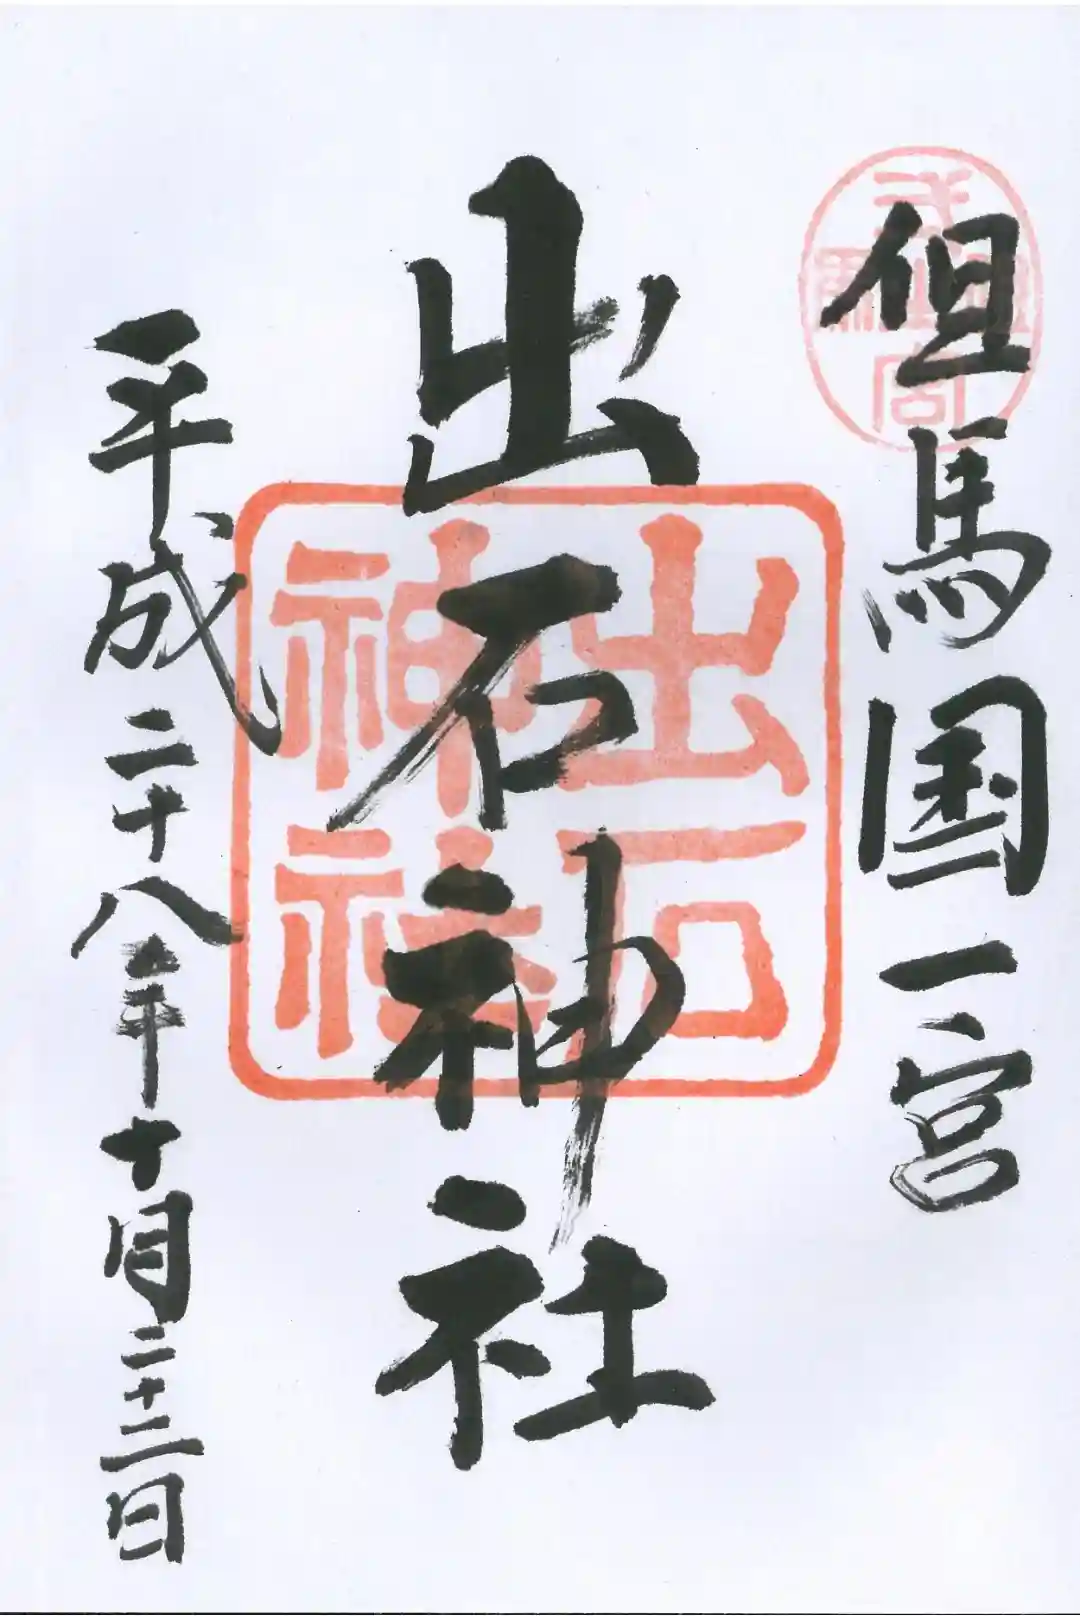 但馬国一宮
出石神社
出石
神社
平成二十八年十月二十二日